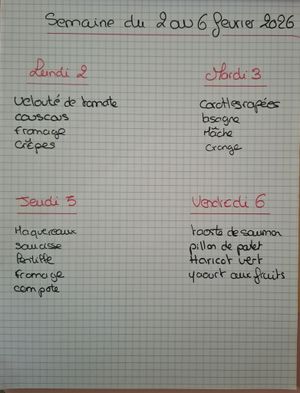 Semaine du 2 au 6 février 2026
Lundi 2
Velouté de tomate
couscous
fromage
Crêpes
Mardi 3
Carottes rapées
lasagne
Mâche
Orange
Jeudi 5
Maquereaux
saucisse
fromage
compote
Vendredi 6
toaste de saumon
pillon de pulet
Haricot vert
yaourt aux fruits